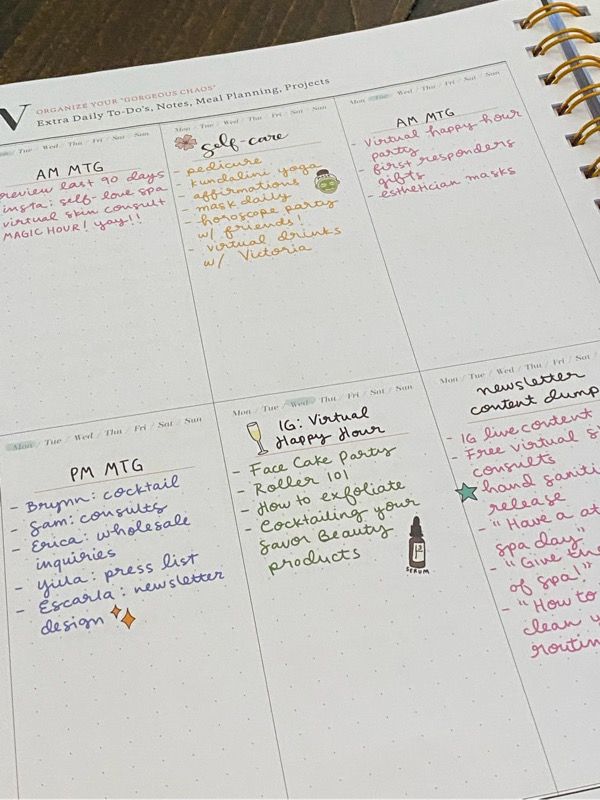 V
ORGANIZE YOUR "GORGEOUS CHAOS"
Extra Daily To-Do's, Notes, Meal Planning, Projects
Tue / Wed / Thu / Fri / Sat / Sun
AM MTG
review last 90 days
insta: self-love spa
virtual skin consult
MAGIC HOUR! yay!!
Mon / Tue / Wed / Thu / Fri / Sat / Sun
self-care
- pedicure
- kundalini yoga
- affirmations
- mask daily
- horoscope party
w/ friends!
- virtual drinks
w/ Victoria
Mon / Tue / Wed / Thu / Fri / Sat / Sun
AM MTG
- virtual happy hour
party
- first responders
gifts
- esthetician masks
Mon / Tue / Wed / Thu / Fri / Sat / Sun
PM MTG
- Brynn: cocktail
- Sam: consults
- Erica: wholesale
inquiries
- Yiula: press list
- Escarla: newsletter
design
Mon / Tue / Wed / Thu / Fri / Sat / Sun
IG: Virtual
Happy Hour
- Face Cake Party
- Roller 101
- How to exfoliate
- Cocktailing your
Savor Beauty
products
SERUM
Mon / Tue / Wed / Thu / Fri / Sat
newsletter
content dump
- IG live content
- Free virtual
consults
hand
release
- "Have a
spa day"
- "Give
of spa!"
- "How to
clean